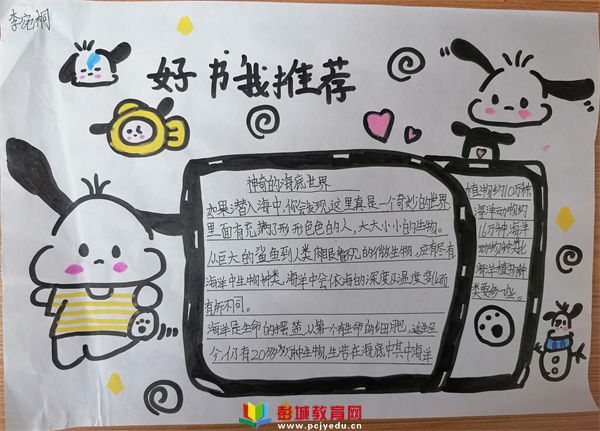 李宛桐
好书我推荐
神奇的海底世界
如果潜入海中,你会发现,这里真是一个奇妙的世界
里面有充满了形形色色的人,大大小小的生物。
从巨大的鲨鱼到人类肉眼看不见的微生物,应有尽有
海洋中生物种类,海洋中会依海的深度及温度变化而
有所不同。
海洋是生命的摇篮,从第一个有生命的细胞,
今仍有20多万种生物,生活在海底中其中海洋
植物约10万种
海洋动物约
16万种,海洋
动物种类比
海洋植物种
类要多一些。
彭城教育网
www.pcjyedu.cn